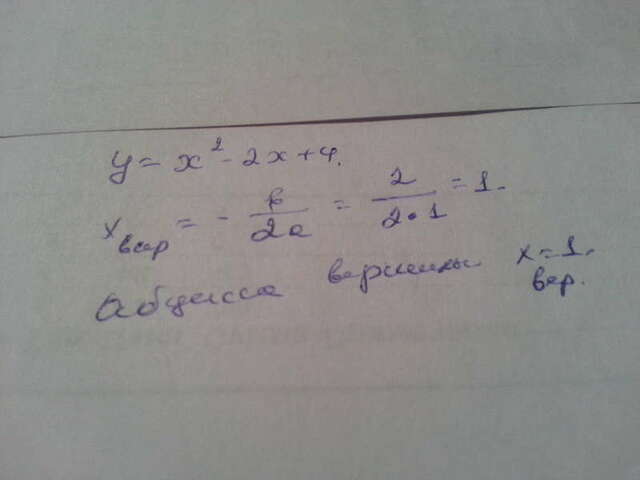 y = x² - 2x + 4.
x вер = - в/2a = 2/2·1 = 1.
Абцисса вершины x вер. = 1.